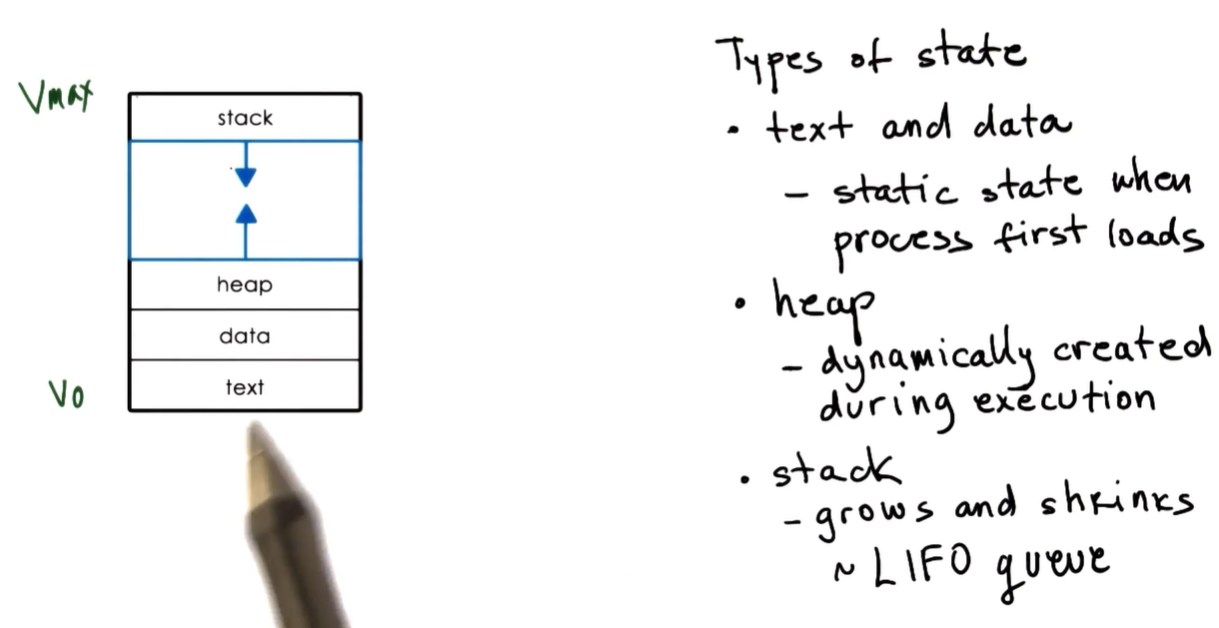 Vmax
stack
heap
data
text
V0
Types of state
• text and data
- static state when
process first loads
• heap
- dynamically created
during execution
• stack
- grows and shrinks
~ LIFO queue